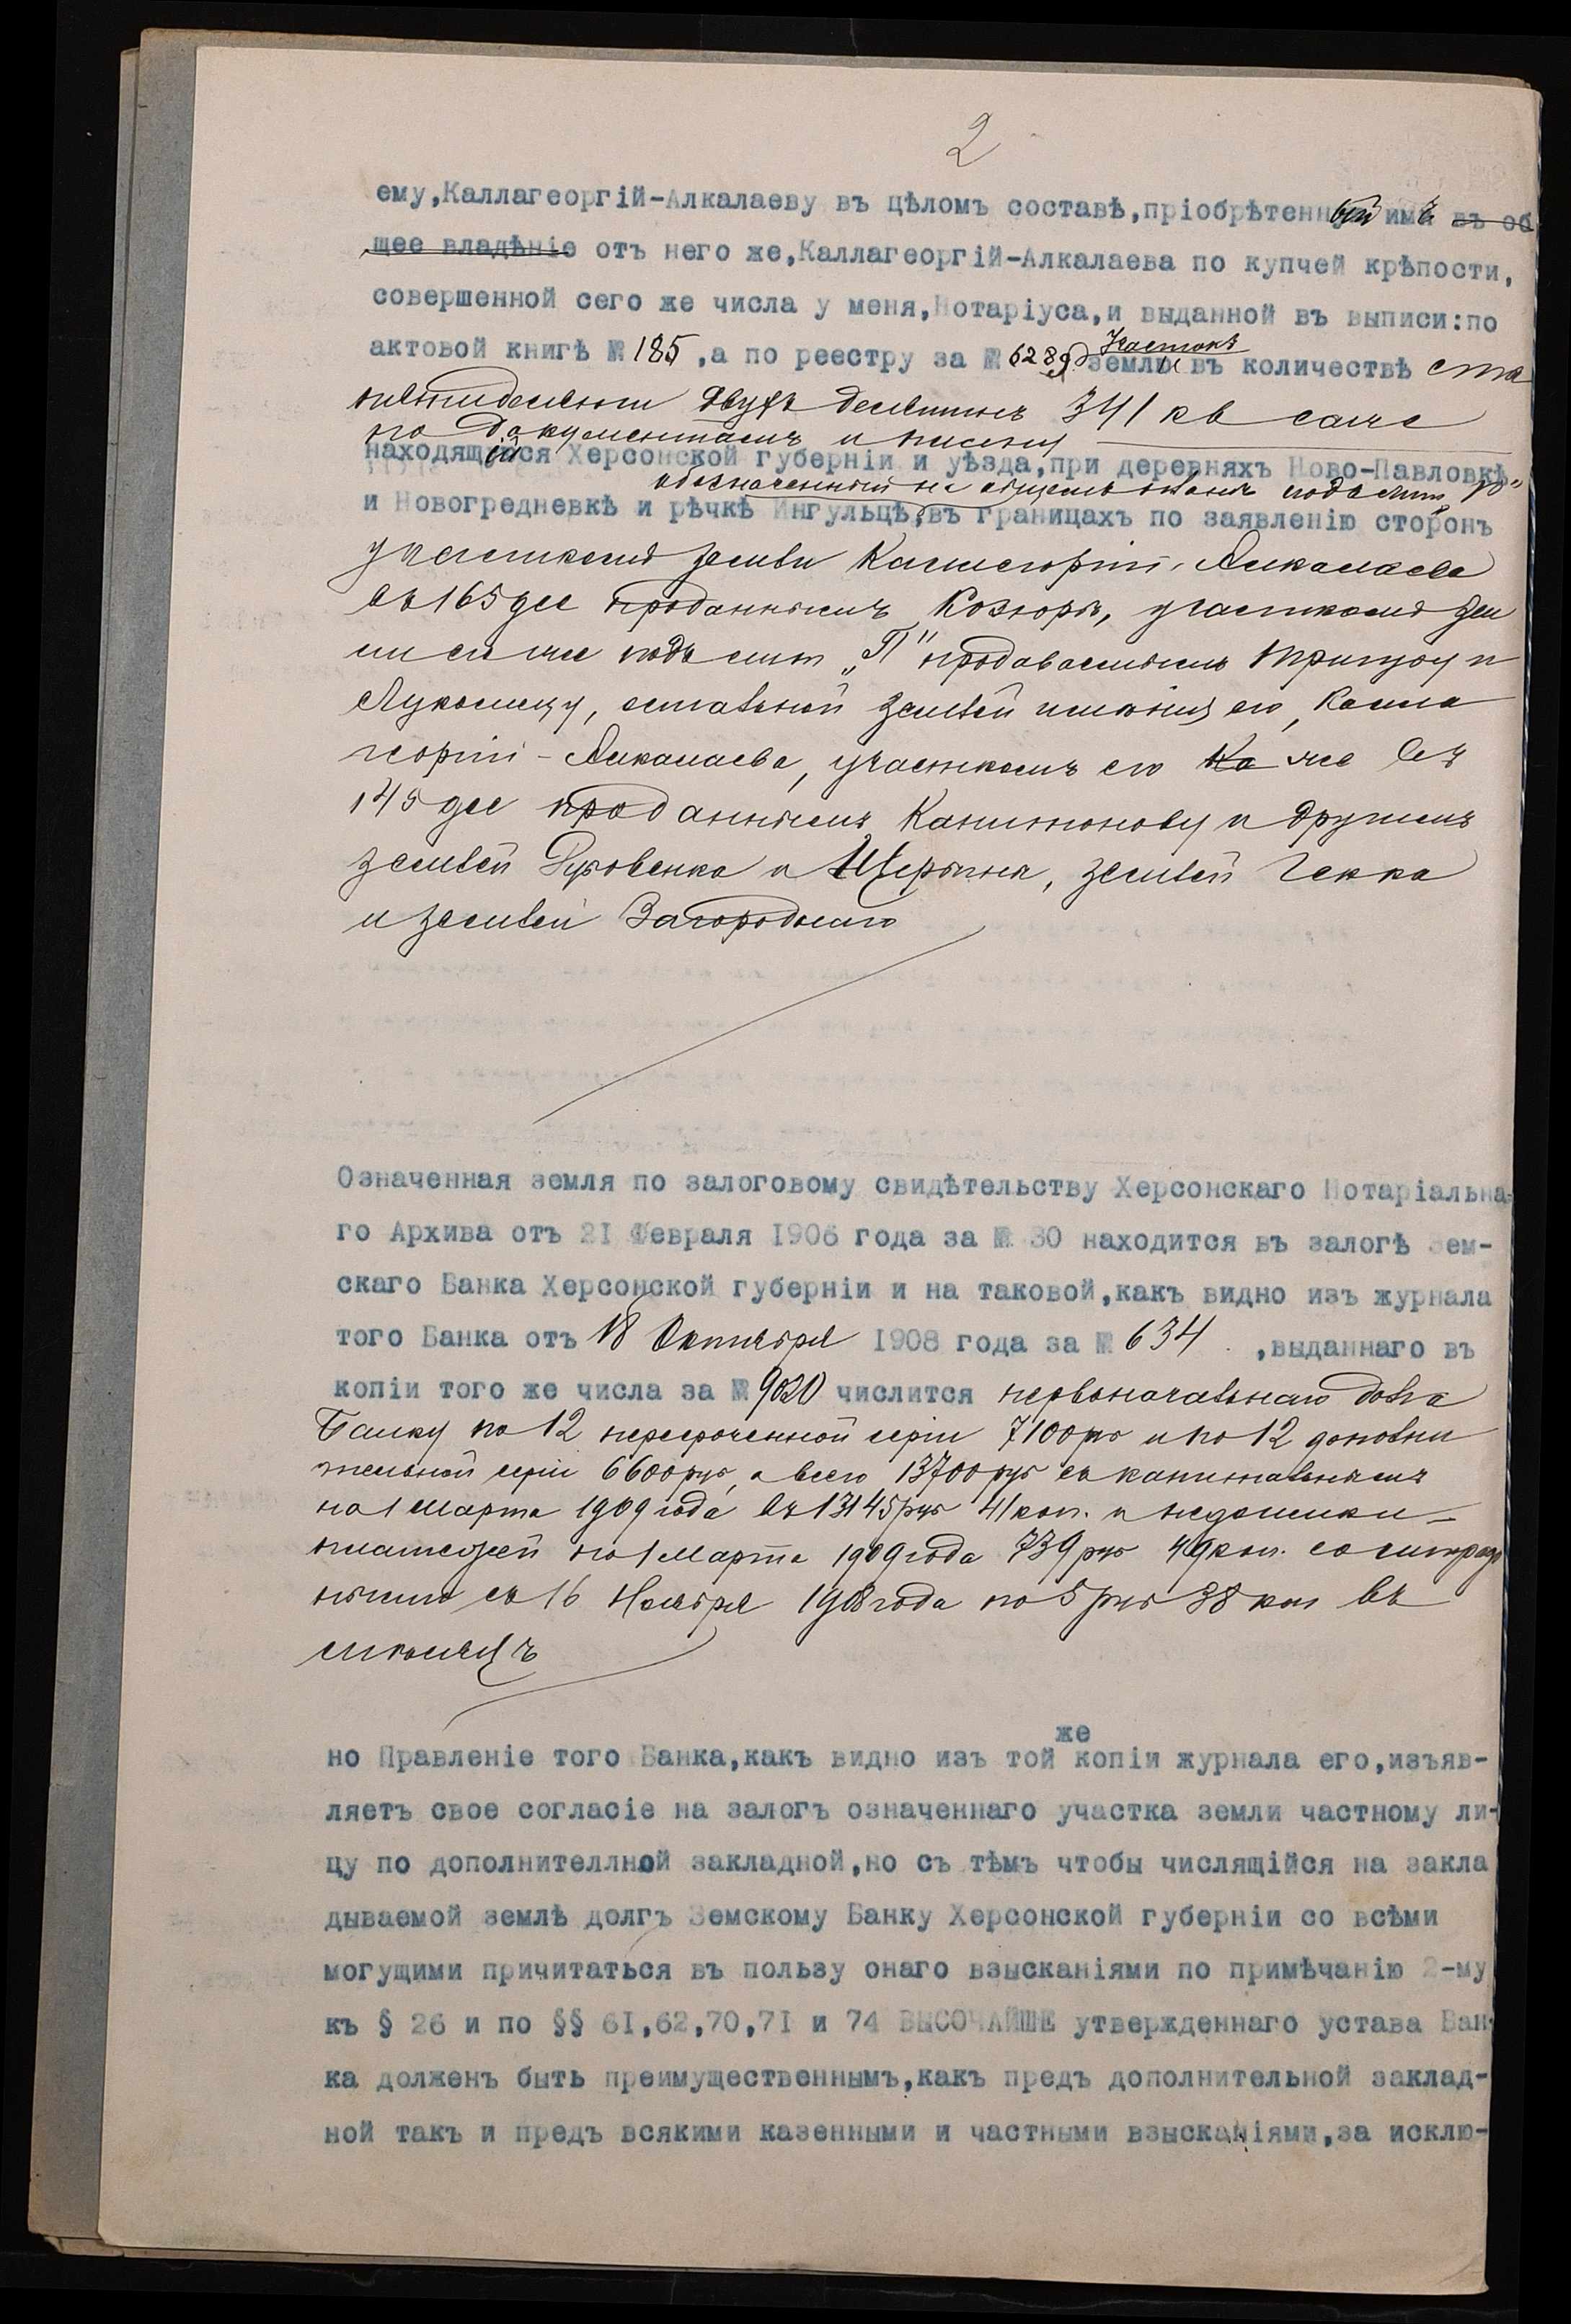 2
ему,Каллагеоргій-Алкалаеву въ цѣломъ составѣ,пріобрѣтенный имъ въ об
щее владѣніе отъ него же,Каллагеоргій-Алкалаева по купчей крѣпости,
совершенной сего же числа у меня,Нотаріуса,и выданной въ выписи:по
участокъ
актовой книгѣ № 185 ,а по реестру за № 6289 земли въ количествѣ ста
пятидесяти двухъ десятинъ 341 кв саж
по документамъ и плану
находящійся Херсонской губерніи и уѣзда,при деревняхъ Ново-Павловкѣ
обозначенный на общемъ планѣ подъ лит
и Новогредневкѣ и рѣчкѣ Ингульцѣ,въ границахъ по заявленію сторонъ
участкомъ земли Каллагеоргій-Алкалаева
въ 165 дес проданнымъ Козюрѣ, участкомъ зем
ли его же подъ лит „П" продаваемымъ
остальной землей имѣнія его, Калла
георгій-Алкалаева, участкомъ его Ка же въ
145 дес проданнымъ Капитонову и другимъ
землей и землей Гекка
и землей Загороднаго
Означенная земля по залоговому свидѣтельству Херсонскаго Нотаріальна-
го Архива отъ 21 Февраля 1906 года за № 30 находится въ залогѣ Зем-
скаго Банка Херсонской губерніи и на таковой,какъ видно изъ журнала
того Банка отъ 18 Октября 1908 года за № 634 ,выданнаго въ
копіи того же числа за № 9020 числится первоначальнаго долга
Банку по 12 пересроченной серіи 7100 руб и по 12 дополни
тельной серіи 6600 руб, а всего 13700 руб съ капитальнымъ
на 1 Марта 1909 года въ 13145 руб 41 коп. и недоимки
платежей по 1 Марта 1909 года 739 руб 49 коп. со штраф
нымъ съ 16 Ноября 1908 года по 5 руб 38 коп въ
мѣсяцъ
же
но Правленіе того Банка,какъ видно изъ той копіи журнала его,изъяв-
ляетъ свое согласіе на залогъ означеннаго участка земли частному ли-
цу по дополнителлной закладной,но съ тѣмъ чтобы числящійся на закла
дываемой землѣ долгъ Земскому Банку Херсонской губерніи со всѣми
могущими причитаться въ пользу онаго взысканіями по примѣчанію 2-му
къ § 26 и по §§ 61,62,70,71 и 74 ВЫСОЧАЙШЕ утвержденнаго устава Бан-
ка долженъ быть преимущественнымъ,какъ предъ дополнительной заклад-
ной такъ и предъ всякими казенными и частными взысканіями,за исклю-